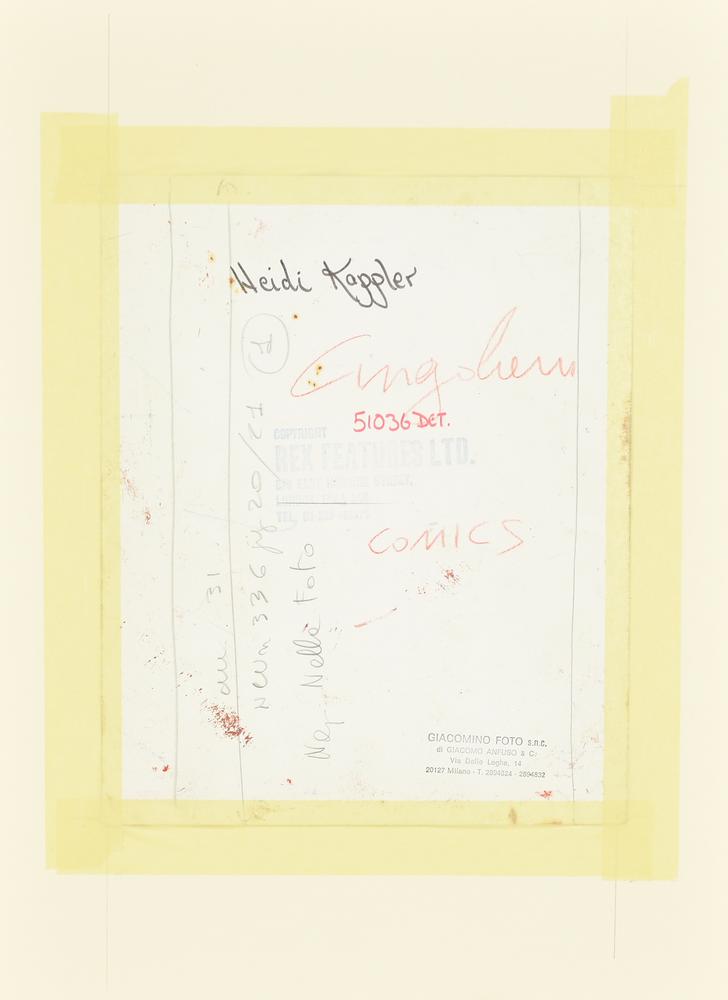 Heidi Kappler
1
51036 DET.
COPYRIGHT
REX FEATURES LTD.
LONDON
TEL.
COMICS
31
NCWn 336 pg 20/21
Neg. Nella Foto
GIACOMINO FOTO s.n.c.
di GIACOMO ANFUSO & C.
Via Delle Leghe, 14
20127 Milano - T. 2894024 - 2894832